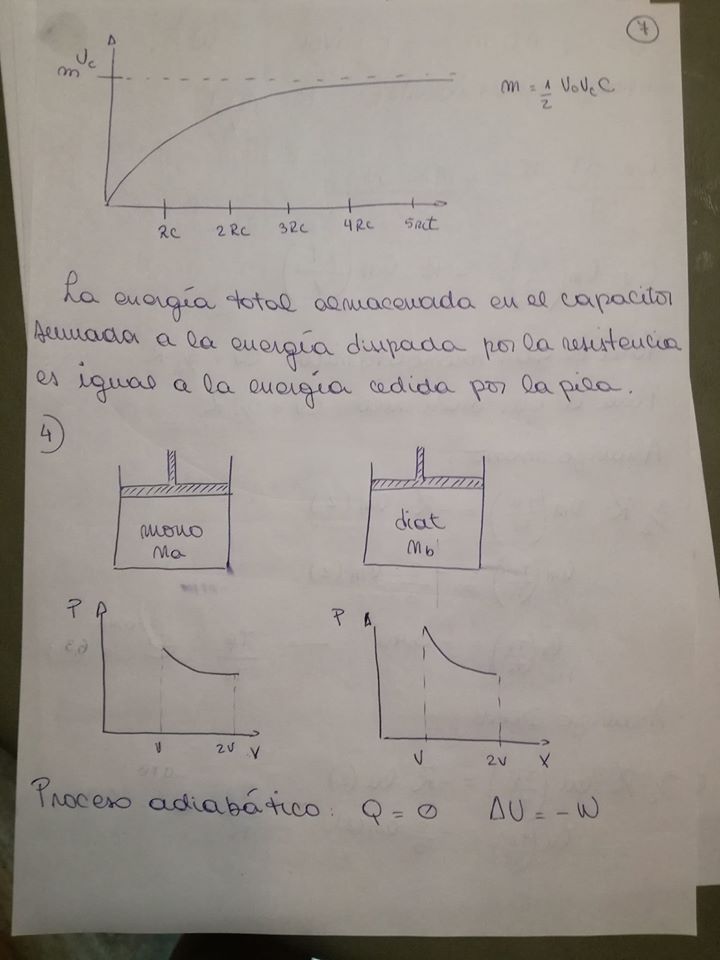 7
Uc
m
m = 1/2 V₀VcC
RC 2RC 3RC 4RC 5RCt
La energía total almacenada en el capacitor
sumada a la energía disipada por la resistencia
es igual a la energía cedida por la pila.
4)
mono diat
na nb
P P
V 2V V V 2V X
Proceso adiabático: Q = 0 ΔU = -W